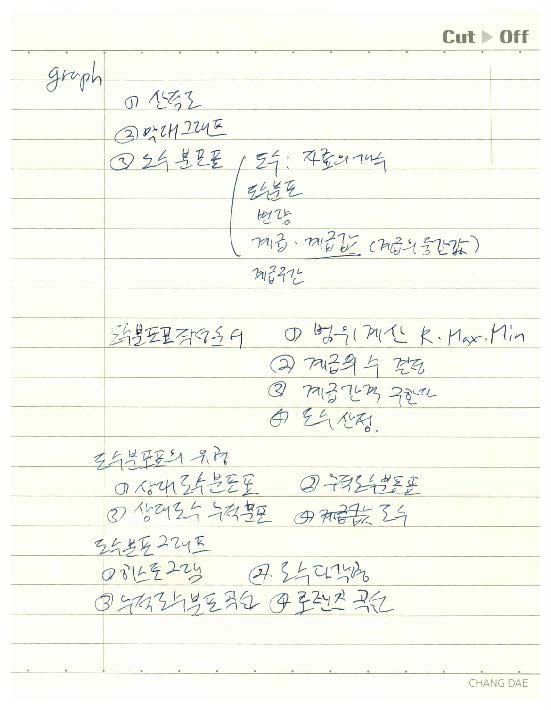 Cut ▶ Off
graph
① 산적도
② 막대그래프
③ 도수분포표 도수: 자료의 개수
도수분포
변량
계급 · 계급값 (계급의 중간값)
계급구간
도수분포표 작성순서 ① 범위계산 R. Max. Min
② 계급의 수 결정
③ 계급간격 구한다
④ 도수산정.
도수분포표의 유형
① 상대도수분포표 ② 누적도수분포표
③ 상대도수 누적분포 ④ 도수
도수분포그래프
① 히스토그램 ②. 도수다각형
③ 누적도수분포곡선 ④ 로렌츠 곡선
CHANG DAE